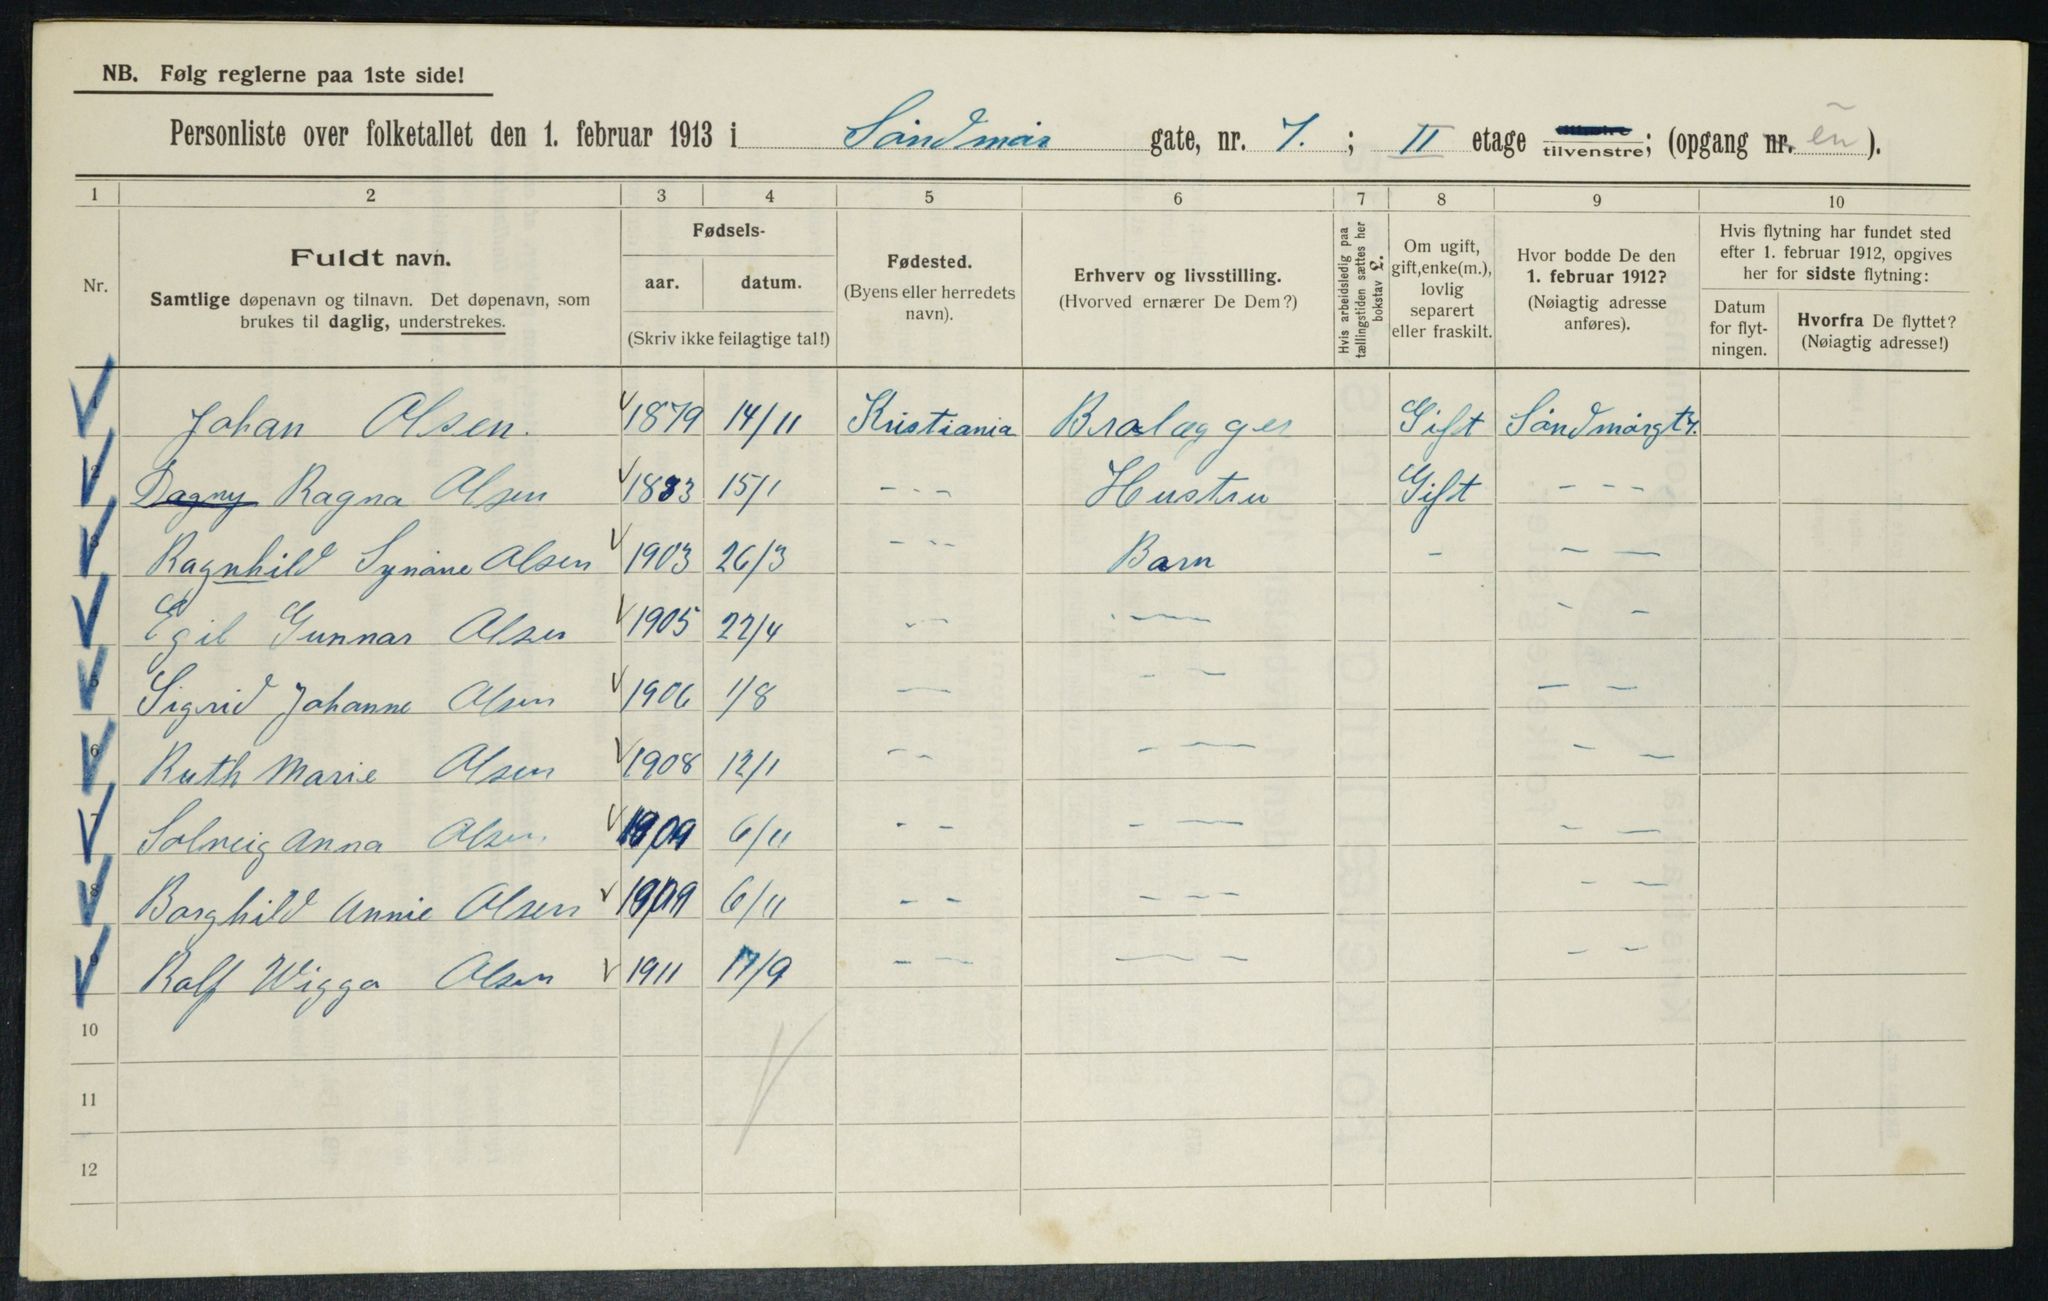 NB. Følg reglerne paa 1ste side!
Personliste over folketallet den 1. februar 1913 i Söndmörs gate, nr. 7. ; II etage tilvenstre; (opgang nr. en ).
1 2 3 4 5 6 7 8 9 10
Nr.
Fuldt navn.
Samtlige døpenavn og tilnavn. Det døpenavn, som
brukes til daglig, understrekes.
Fødsels-
aar. datum.
(Skriv ikke feilagtige tal!)
Fødested.
(Byens eller herredets
navn).
Erhverv og livsstilling.
(Hvorved ernærer De Dem?)
Hvis arbeidsledig paa
tællingstiden sættes her
bokstav L.
Om ugift,
gift, enke(m.),
lovlig
separert
eller fraskilt.
Hvor bodde De den
1. februar 1912?
(Nøiagtig adresse
anføres).
Hvis flytning har fundet sted
efter 1. februar 1912, opgives
her for sidste flytning:
Datum
for flyt-
ningen.
Hvorfra De flyttet?
(Nøiagtig adresse!)
1 Johan Olsen. 1879 14/11 Kristiania Brolægger Gift Söndmörgt 7.
2 Dagny Ragna Olsen 1883 15/1 - - - Hustru Gift - - -
3 Ragnhild Synöne Olsen 1903 26/3 - - - Barn - - -
4 Egil Gunnar Olsen 1905 22/4 - - - - - -
5 Sigrid Johanne Olsen 1906 1/8 - - - - -
6 Ruth Marie Olsen 1908 12/1 - - - - - -
7 Solveig Anna Olsen 1909 6/11 - - - - - -
8 Borghild Annie Olsen 1909 6/11 - - - - - - -
9 Rolf Wiggo Olsen 1911 17/9 - - - - - - -
10
11
12